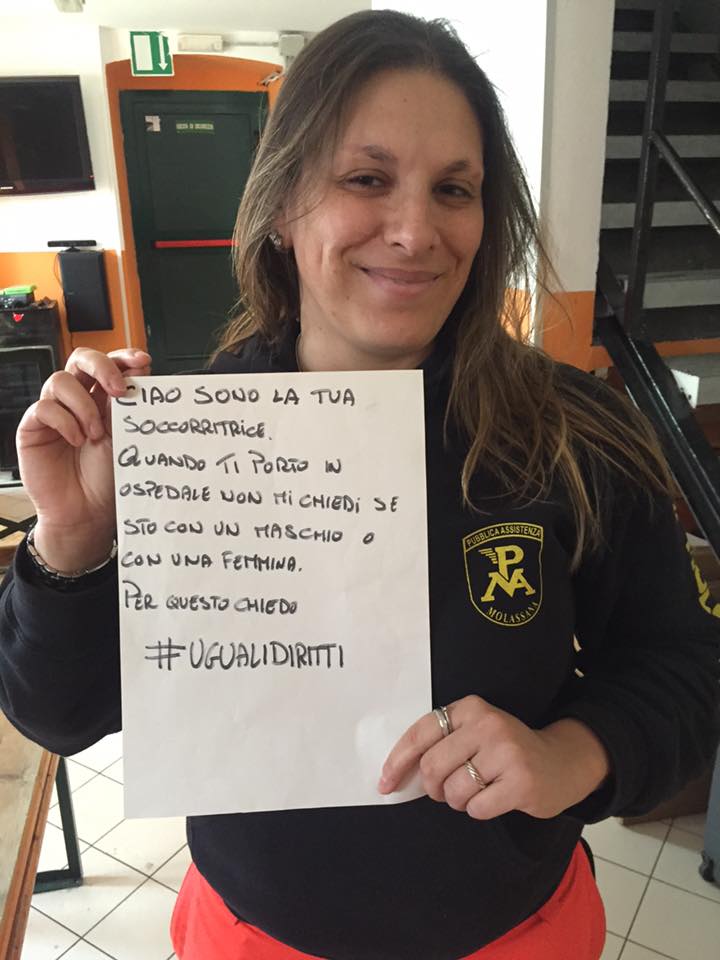 CIAO SONO LA TUA
SOCCORRITRICE.
QUANDO TI PORTO IN
OSPEDALE NON MI CHIEDI SE
STO CON UN MASCHIO O
CON UNA FEMMINA.
PER QUESTO CHIEDO
#UGUALIDIRITTI
PUBBLICA ASSISTENZA
PMA
MOLASSANA
USCITA DI SICUREZZA